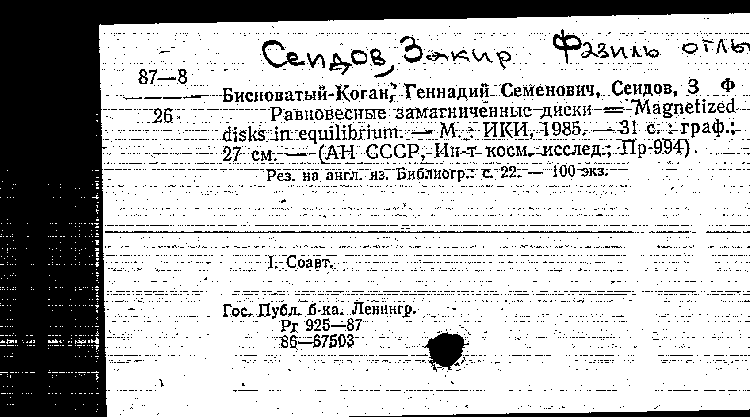 Сеидов, Закир Фазиль оглы
87—8
Бисноватый-Коган, Геннадий Семенович, Сеидов, З Ф
26
Равновесные замагниченные диски = Magnetized
disks in equilibrium. — М. : ИКИ, 1985. — 31 с. : граф.;
27 см. — (АН СССР, Ин-т косм. исслед.; Пр-994).
Рез. на англ. яз. Библиогр.: с. 22. — 100 экз.
I. Соавт.
Гос. Публ. б-ка. Ленингр.
Рг 925—87
86—67503